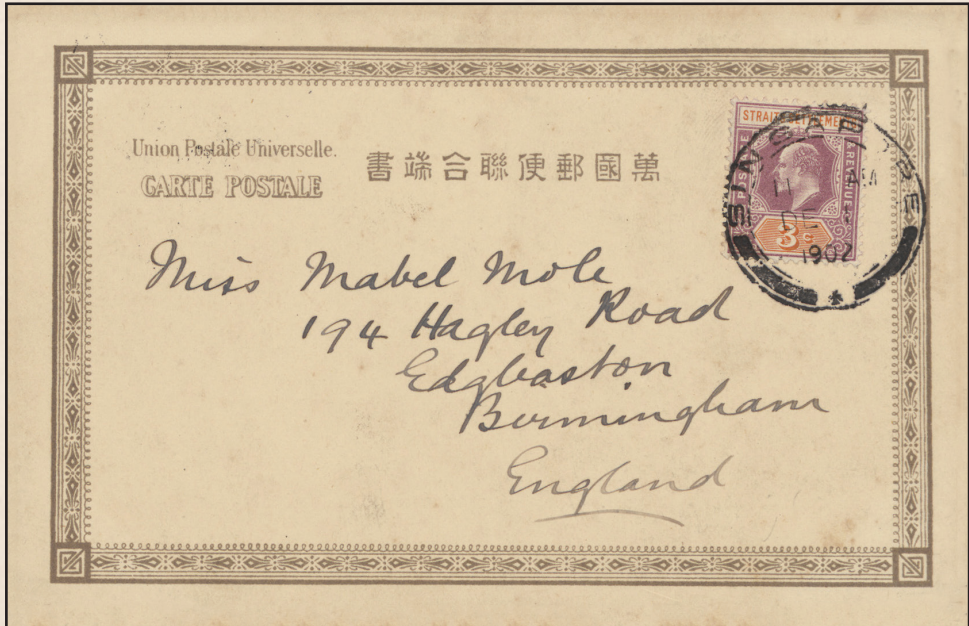 Union Postale Universelle.
CARTE POSTALE
書端合聯便郵國萬
STRAITS SETTLEMENTS
POSTAGE & REVENUE
3c
SINGAPORE
DE
1902
Miss Mabel Mole
194 Hagley Road
Edgbaston
Birmingham
England